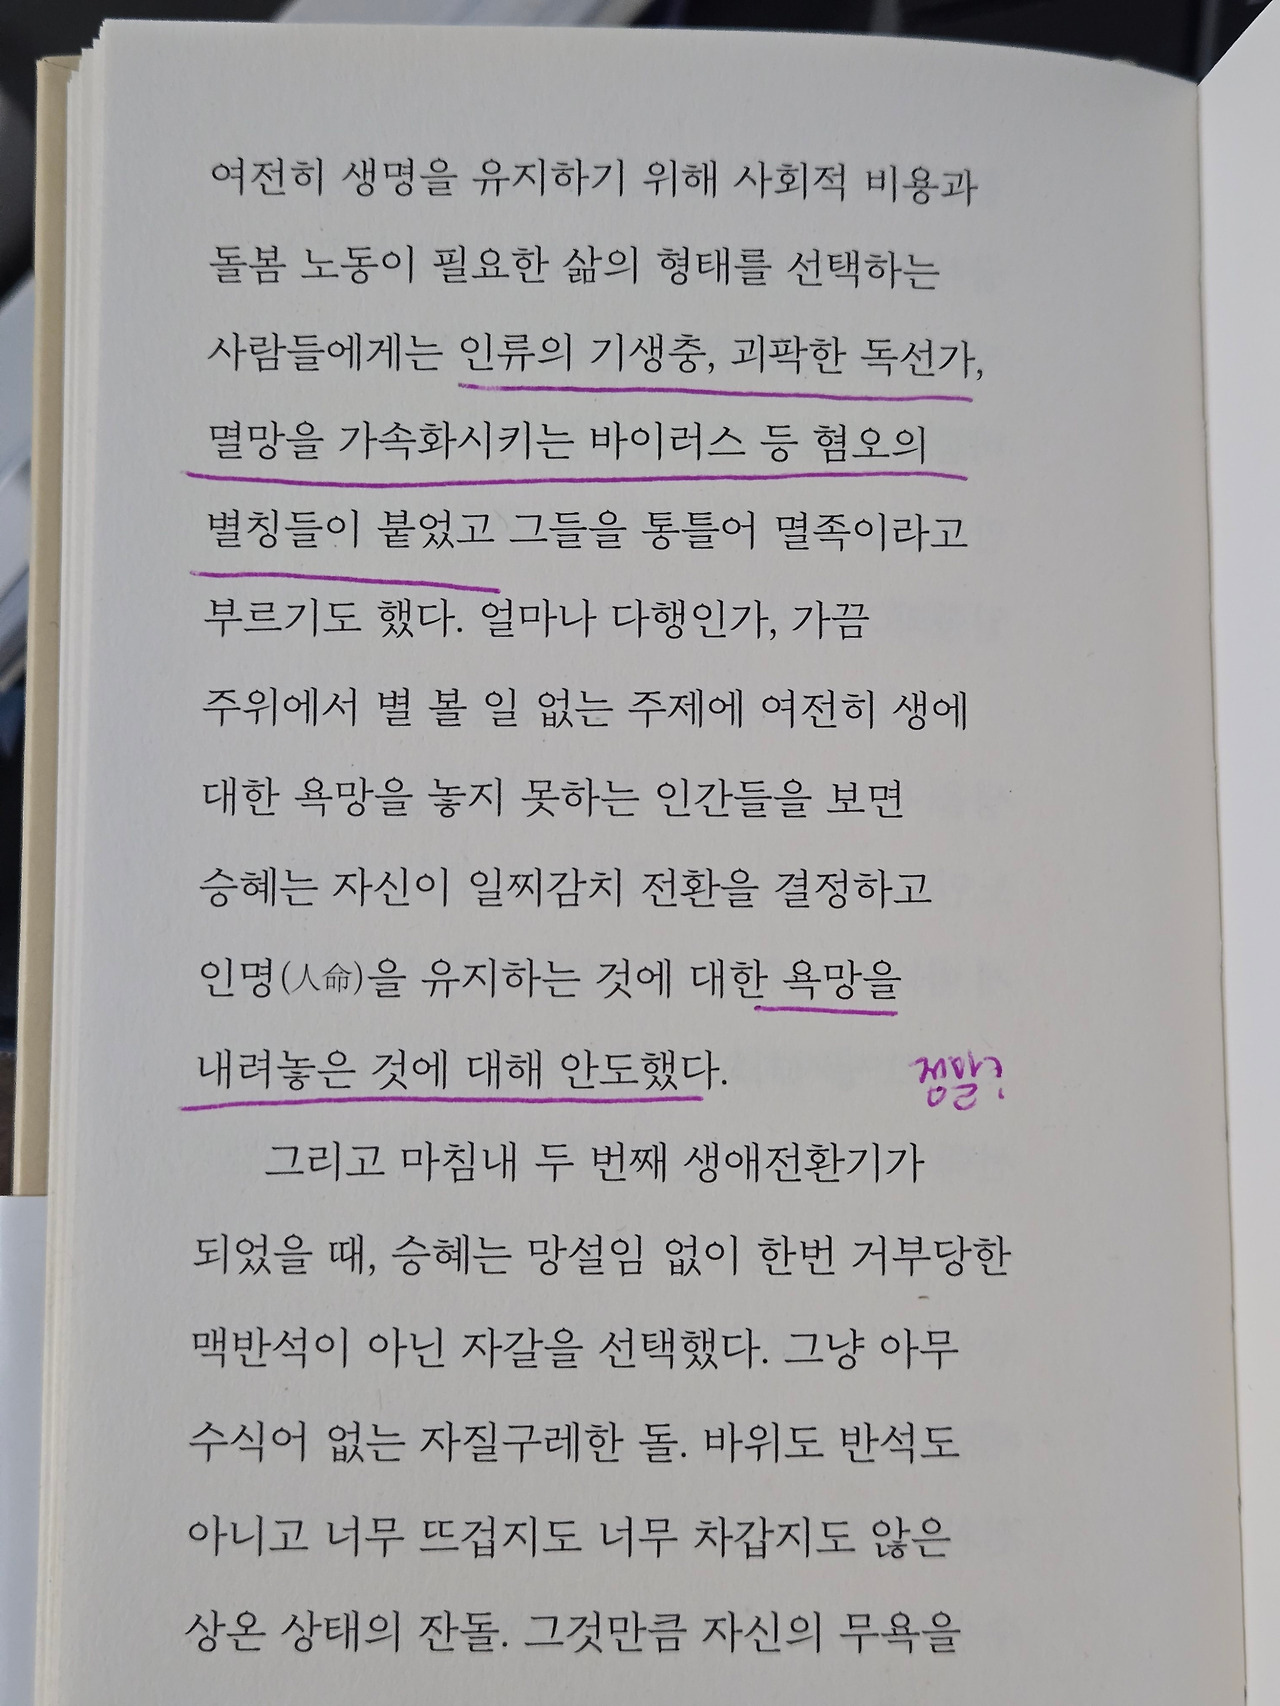 여전히 생명을 유지하기 위해 사회적 비용과
돌봄 노동이 필요한 삶의 형태를 선택하는
사람들에게는 인류의 기생충, 괴팍한 독선가,
멸망을 가속화시키는 바이러스 등 혐오의
별칭들이 붙었고 그들을 통틀어 멸족이라고
부르기도 했다. 얼마나 다행인가, 가끔
주위에서 별 볼 일 없는 주제에 여전히 생에
대한 욕망을 놓지 못하는 인간들을 보면
승혜는 자신이 일찌감치 전환을 결정하고
인명(人命)을 유지하는 것에 대한 욕망을
내려놓은 것에 대해 안도했다.
그리고 마침내 두 번째 생애전환기가
되었을 때, 승혜는 망설임 없이 한번 거부당한
맥반석이 아닌 자갈을 선택했다. 그냥 아무
수식어 없는 자질구레한 돌. 바위도 반석도
아니고 너무 뜨겁지도 너무 차갑지도 않은
상온 상태의 잔돌. 그것만큼 자신의 무욕을